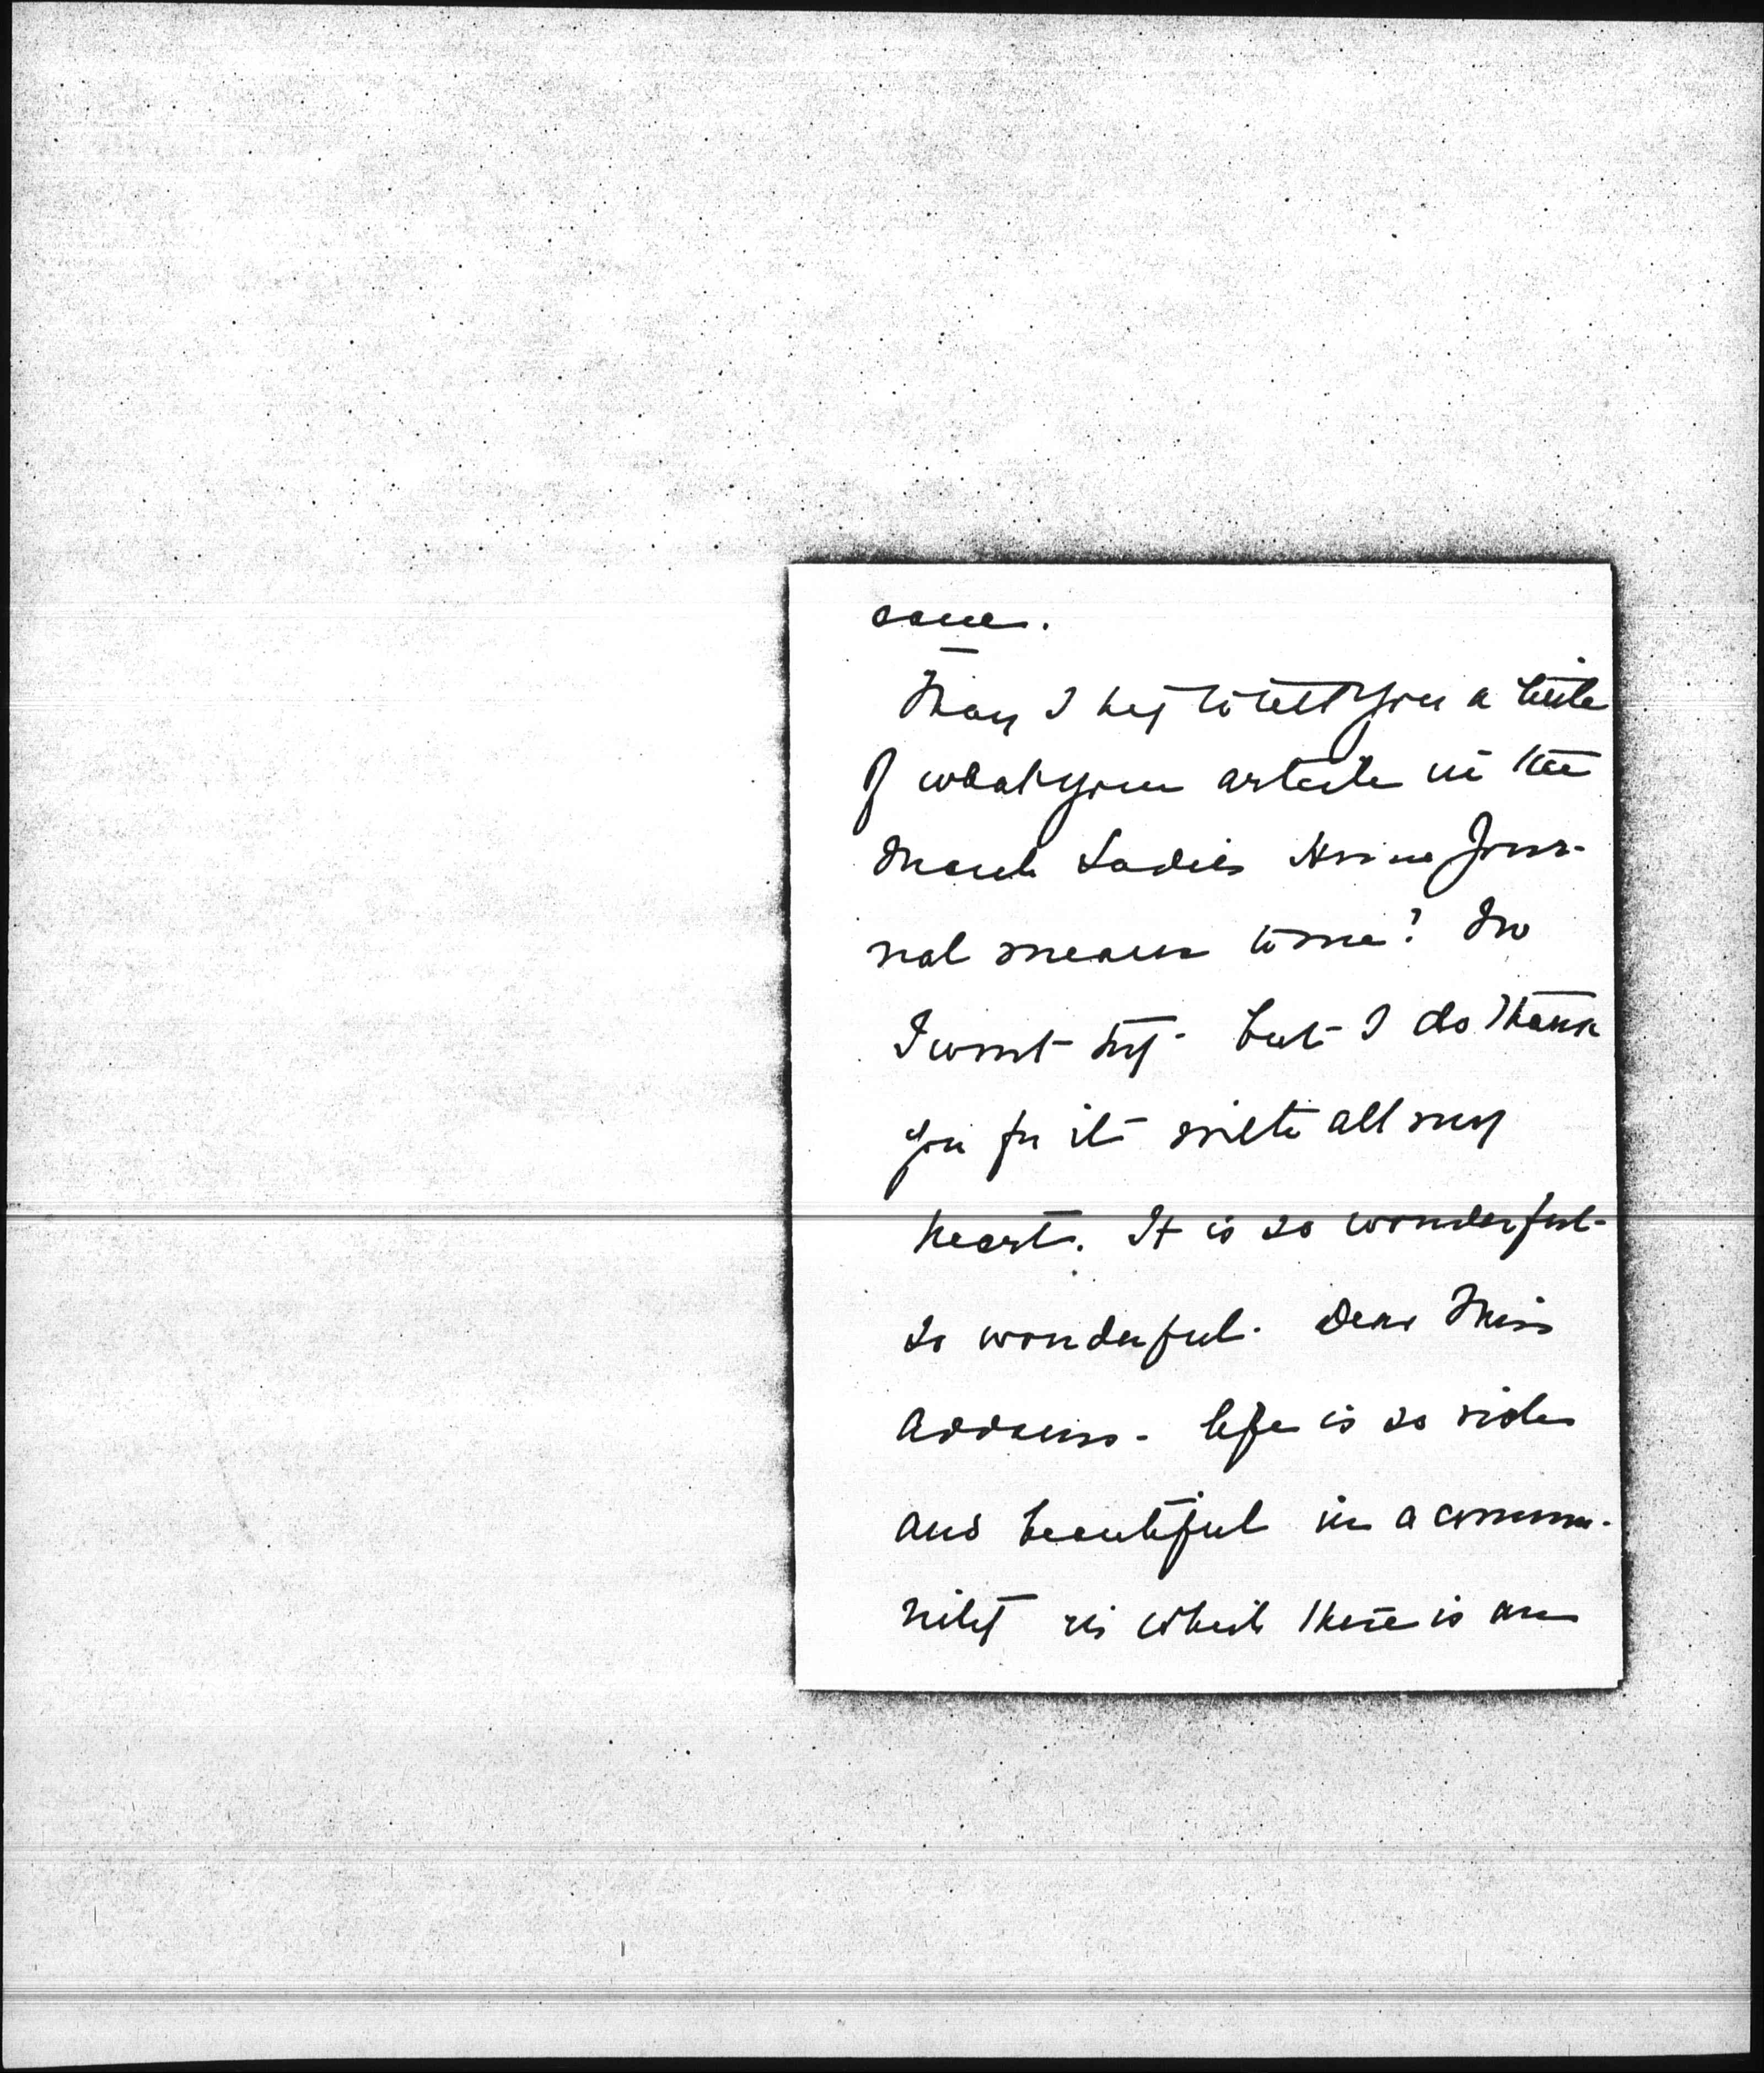 same.
May I try to tell you a little
of what your article in the
March Ladies Home Jour-
nal means to me? No
I wont try - but I do thank
you for it with all my
heart. It is so wonderful -
so wonderful. Dear Miss
Addams - life is so rich
and beautiful in a commu-
nity in which there is an